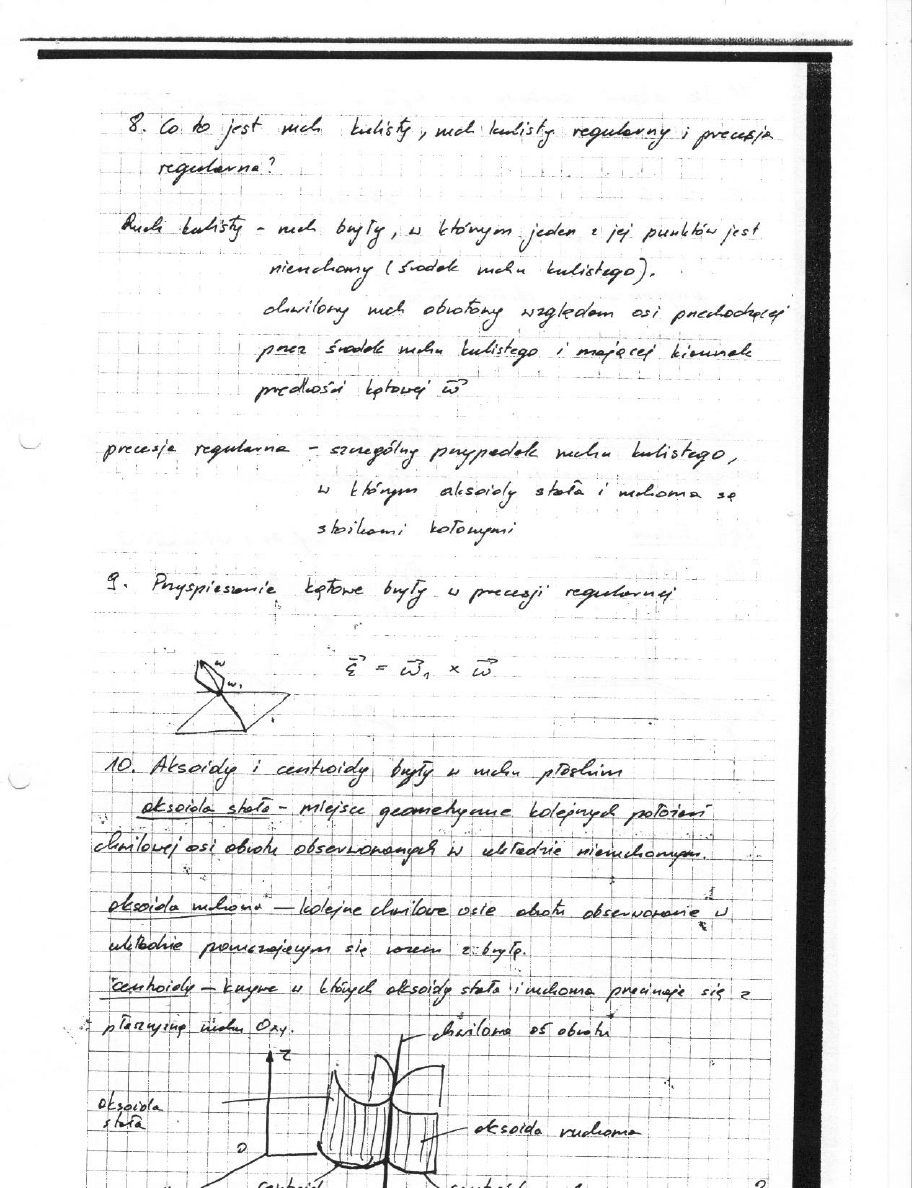 8. Co to jest ruch kulisty, ruch kulisty regularny i precesja
regularna?
Ruch kulisty - ruch bryły, w którym jeden z jej punktów jest
nieruchomy (środek ruchu kulistego).
chwilowy ruch obrotowy względem osi przechodzącej
przez środek ruchu kulistego i mającej kierunek
prędkości kątowej ω⃗
precesja regularna - szczególny przypadek ruchu kulistego,
w którym aksoidy stała i ruchoma są
stożkami kołowymi
9. Przyspieszenie kątowe bryły w precesji regularnej
ω
ω₁
ε⃗ = ω⃗₁ × ω⃗
10. Aksoidy i centroidy bryły w ruchu płaskim
aksoida stała - miejsce geometryczne kolejnych położeń
chwilowej osi obrotu obserwowanych w układzie nieruchomym.
aksoida ruchoma - kolejne chwilowe osie obrotu obserwowane w
układzie poruszającym się wraz z bryłą.
centroidy - krzywe w których aksoidy stała i ruchoma przecinają się z
płaszczyzną ruchu Oxy.
chwilowa oś obrotu
z
aksoida
stała
aksoida ruchoma
0